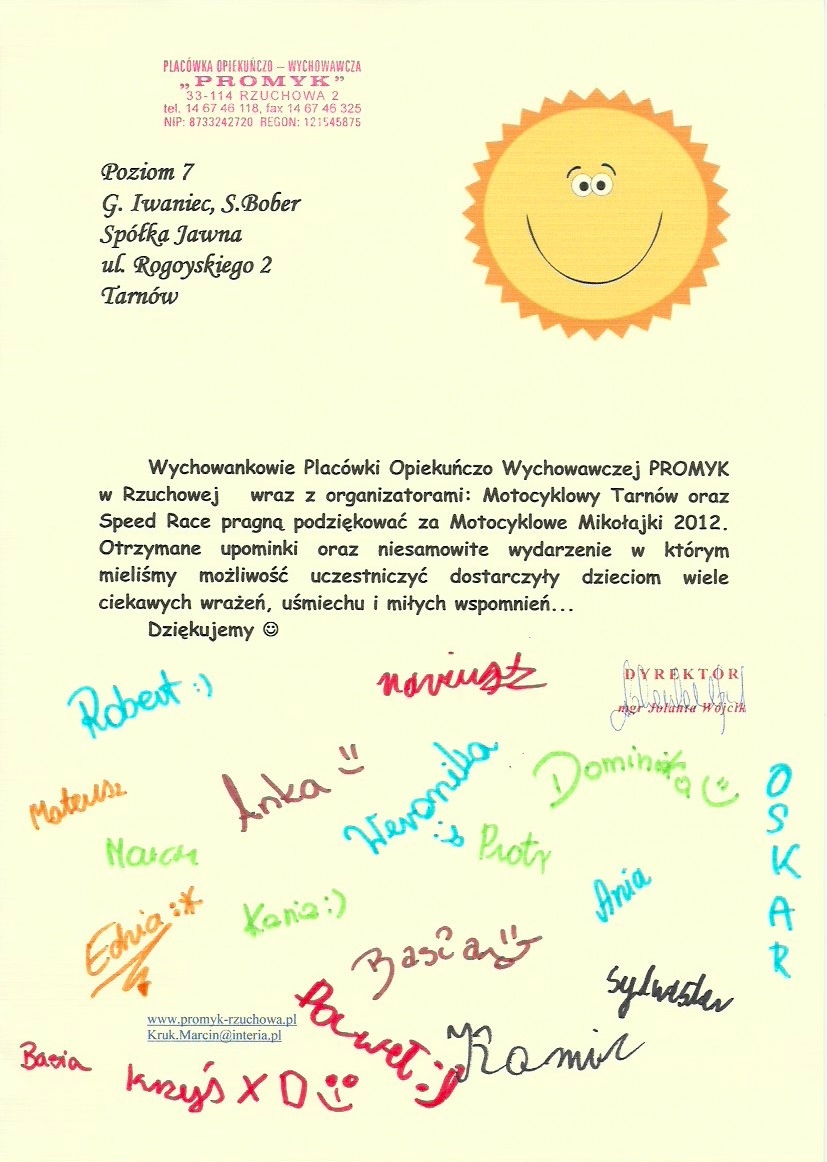 PLACÓWKA OPIEKUŃCZO – WYCHOWAWCZA
„PROMYK”
33-114 RZUCHOWA 2
tel. 14 67 46 118, fax 14 67 46 325
NIP: 8733242720 REGON: 121545875
Poziom 7
G. Iwaniec, S.Bober
Spółka Jawna
ul. Rogoyskiego 2
Tarnów
Wychowankowie Placówki Opiekuńczo Wychowawczej PROMYK
w Rzuchowej wraz z organizatorami: Motocyklowy Tarnów oraz
Speed Race pragną podziękować za Motocyklowe Mikołajki 2012.
Otrzymane upominki oraz niesamowite wydarzenie w którym
mieliśmy możliwość uczestniczyć dostarczyły dzieciom wiele
ciekawych wrażeń, uśmiechu i miłych wspomnień...
Dziękujemy ☺
DYREKTOR
mgr Jolanta Wójcik
Robert :)
Mateusz
Anka
Weronika
Dominika
OSKAR
Kania :)
Ania
Basia
Sylwester
www.promyk-rzuchowa.pl
Kruk.Marcin@interia.pl
Paweł :)
Kamil
Basia
Krzyś XD